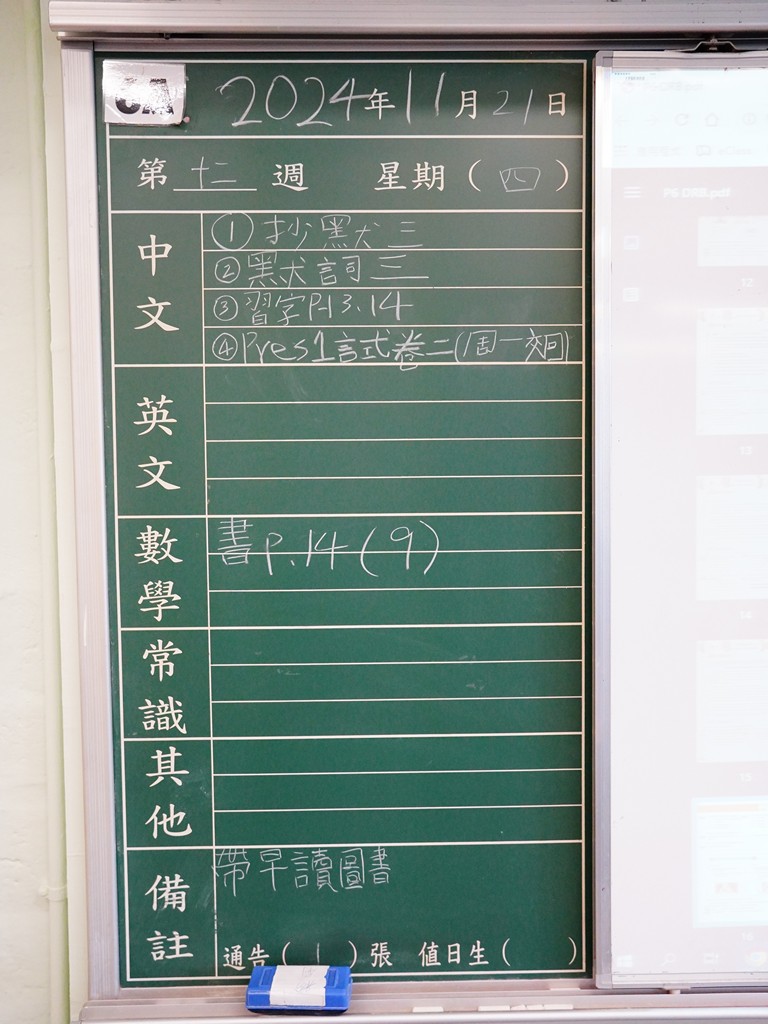 6A
2024年11月21日
第十二週 星期（四）
中文
①抄默三
②默詞三
③習字P.13.14
④Pres1試卷二(周一交回)
英文
數學
書P.14(9)
常識
其他
備註
帶早讀圖書
通告（1）張 值日生（ ）
P6
12